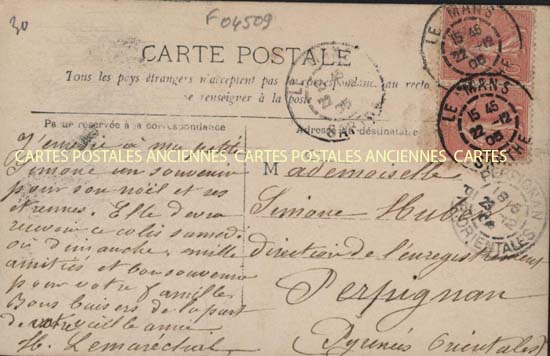 30
F 04509
CARTE POSTALE
Tous les pays étrangers n'acceptent pas la correspondance au recto
se renseigner à la poste
Partie réservée à la correspondance
Adresse du destinataire
CARTES POSTALES ANCIENNES CARTES POSTALES ANCIENNES CARTES POSTALES ANCIENNES
J'envoie à ma petite
Simone un souvenir
pour son noël et ses
étrennes. Elle devra
recevoir ce colis samedi
où dimanche, mille
amitiés et bon souvenir
pour votre famille
Bons baisers de la part
de votre vieille amie.
Lemaréchal
Mademoiselle
Simone
direction de l'enregistrement
Perpignan
Pyrénées Orientales
LE MANS
15 45
22-12
06
SARTHE
LE MANS
15 45
22-12
06
SARTHE
PERPIGNAN
ORIENTALES